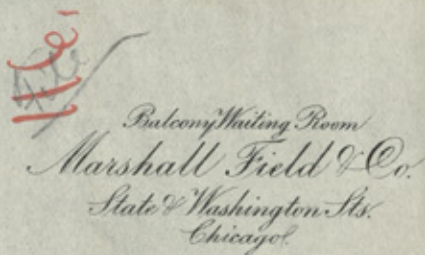 File
Balcony Waiting Room
Marshall Field & Co.
State & Washington Sts.
Chicago.